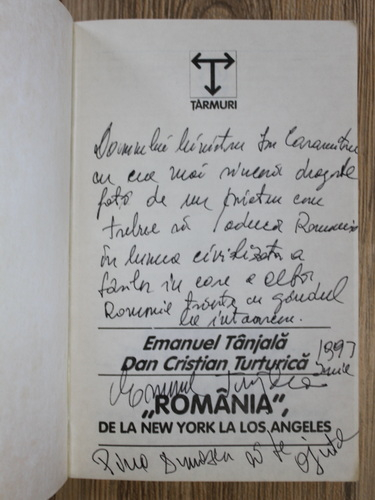 ȚĂRMURI
Domnului Ministru Ion Caramitru
cu cea mai sinceră dragoste
față de un prieten care
trebue să aducă România
în lumea civilizată a
țărilor în care a
Românie cu gândul
întoarcem.
Emanuel Tânjală
Dan Cristian Turturică
1997
Emanuel Tânjala
„ROMÂNIA",
DE LA NEW YORK LA LOS ANGELES
Bine Dumnezeu să te ajute